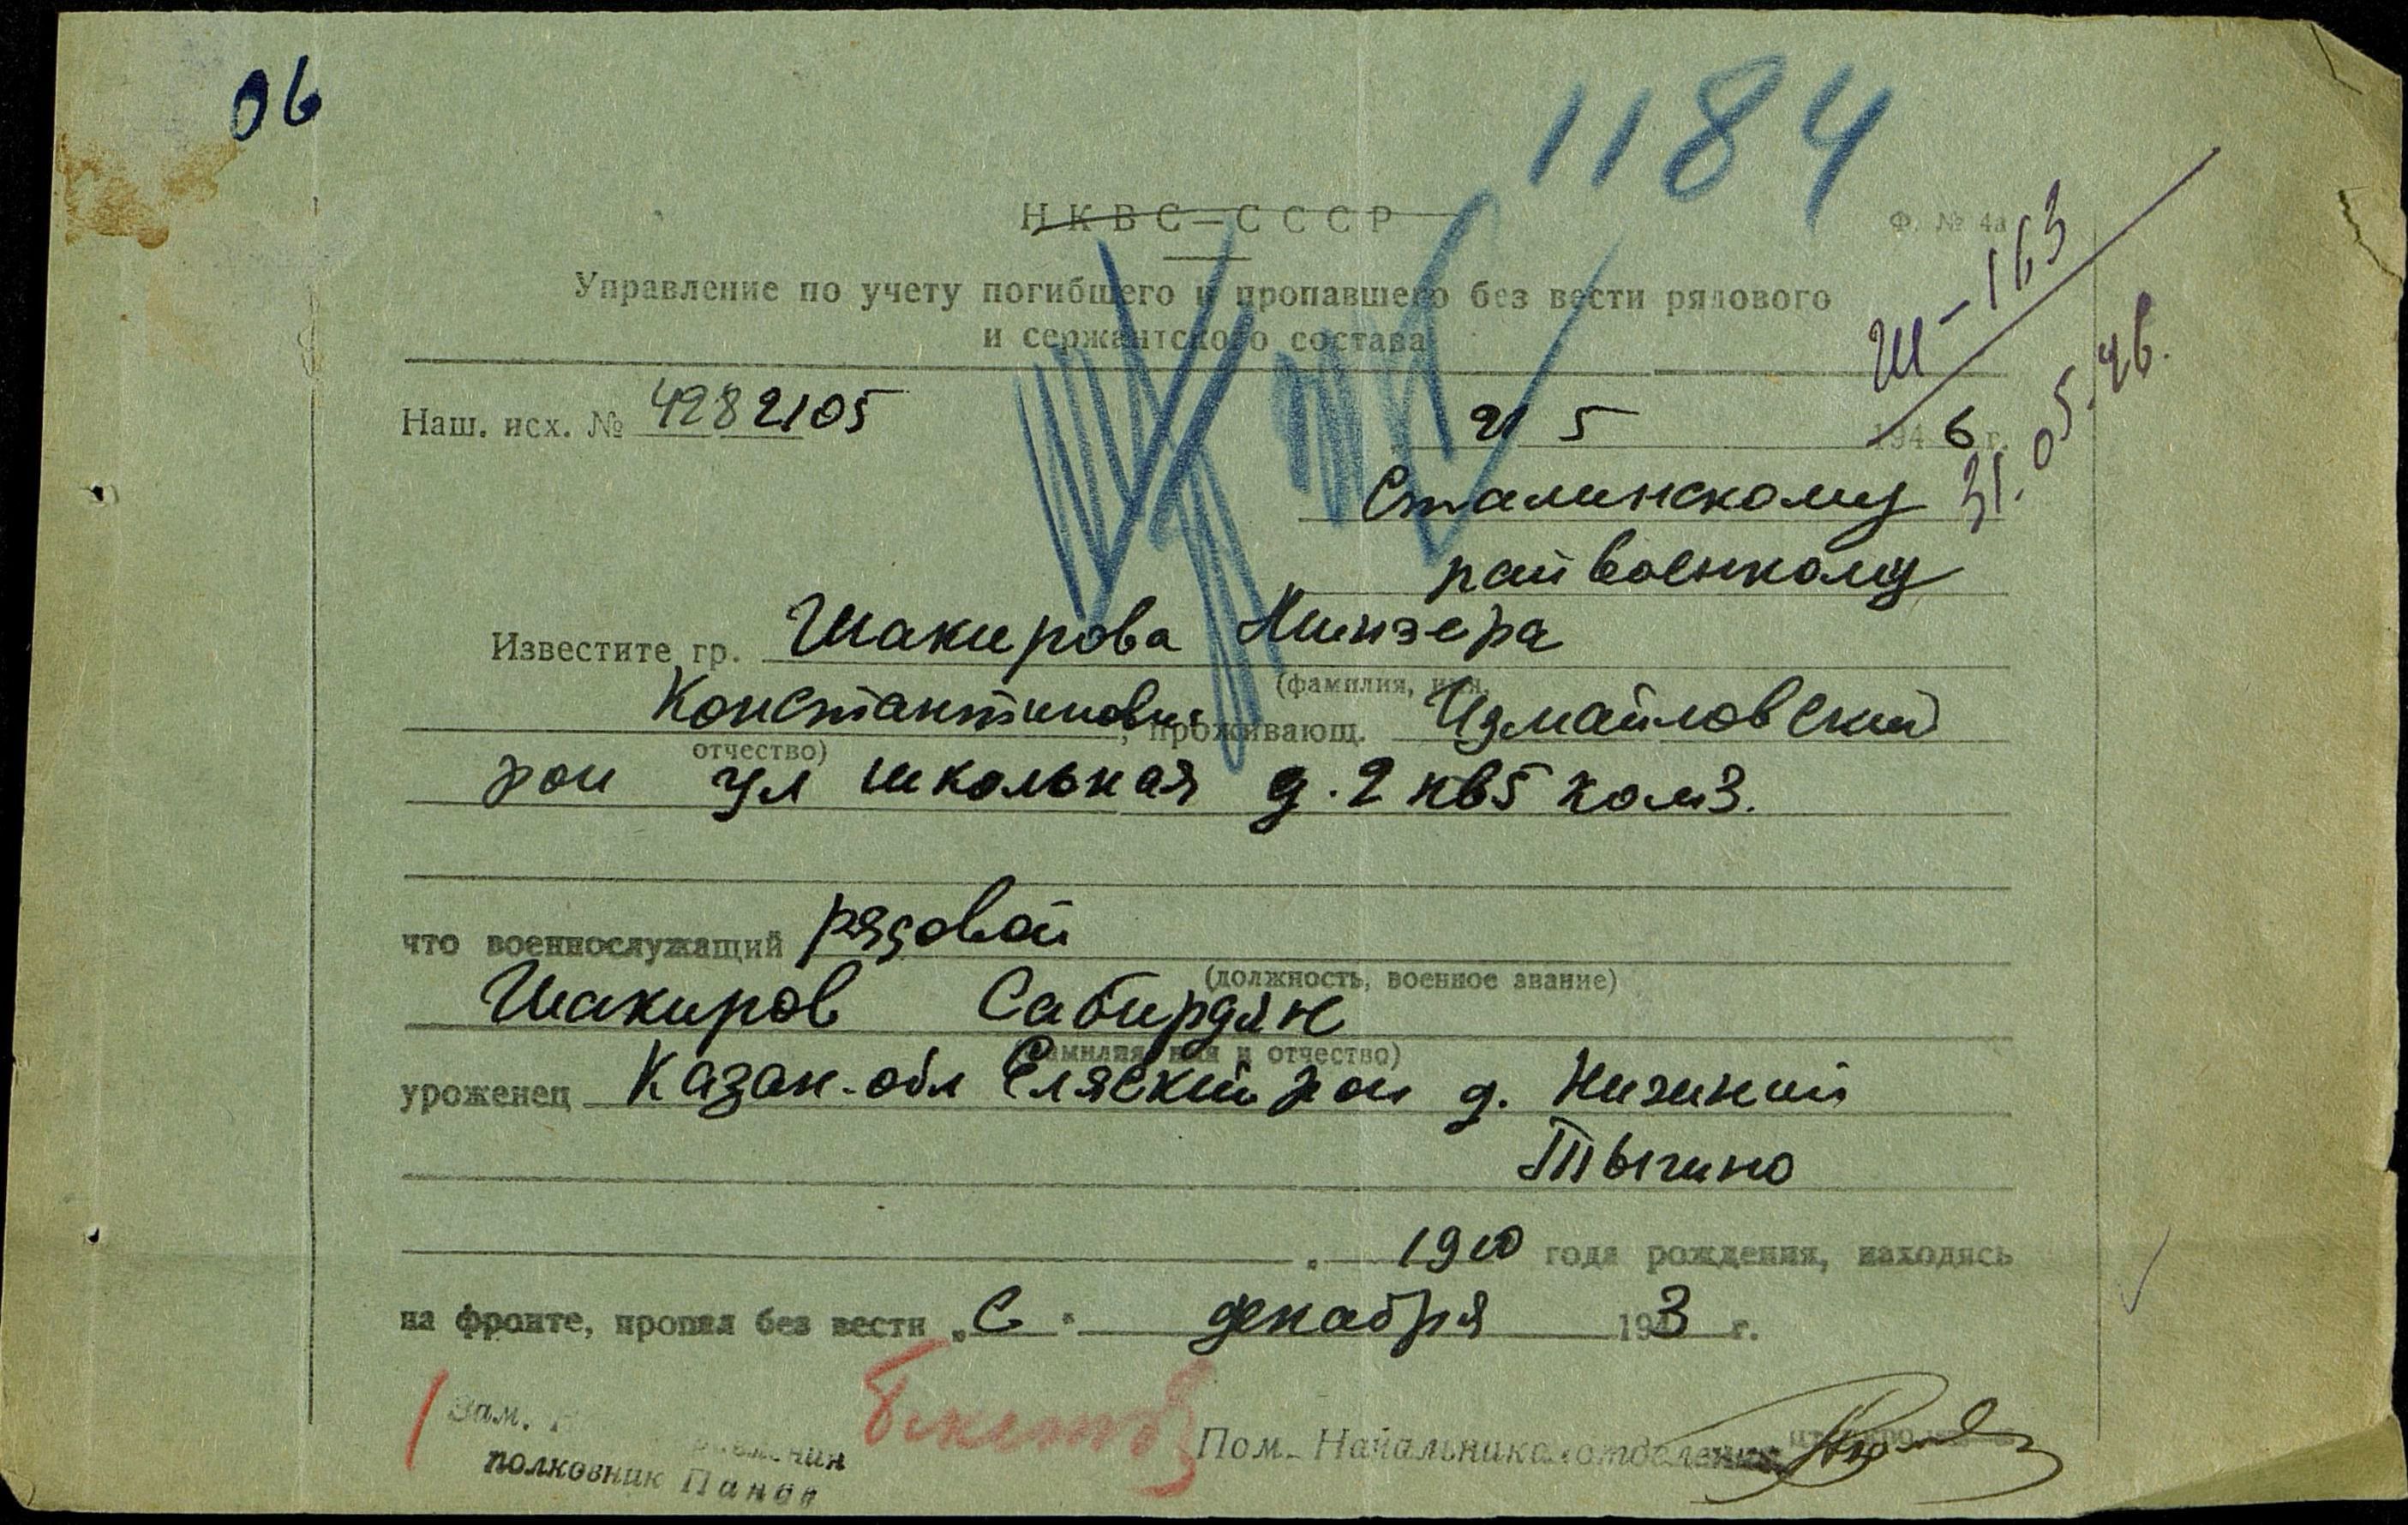 06
1184
НКВС-СССР
Ф. № 4а
Ш-163
31.05.46.
Управление по учету погибшего и пропавшего без вести рядового
и сержантского состава
Наш. исх. № 4282105
21 5 1946 г.
Сталинскому
райвоенкому
Известите гр. Шакирова Минзера
(фамилия, имя,
Константиновна, проживающ. Измайловский
отчество)
рои ул школьная д. 2 кв5 ком3.
что военнослужащий рядовой
(должность, военное звание)
Шакиров Сабирдян
(фамилия, имя и отчество)
уроженец Казан-обл рои д. Нижний
Тыгино
1910 года рождения, находясь
на фронте, пропал без вести „С" декабря 1943 г.
Зам.
полковник Панов
Пом. Начальника отделения